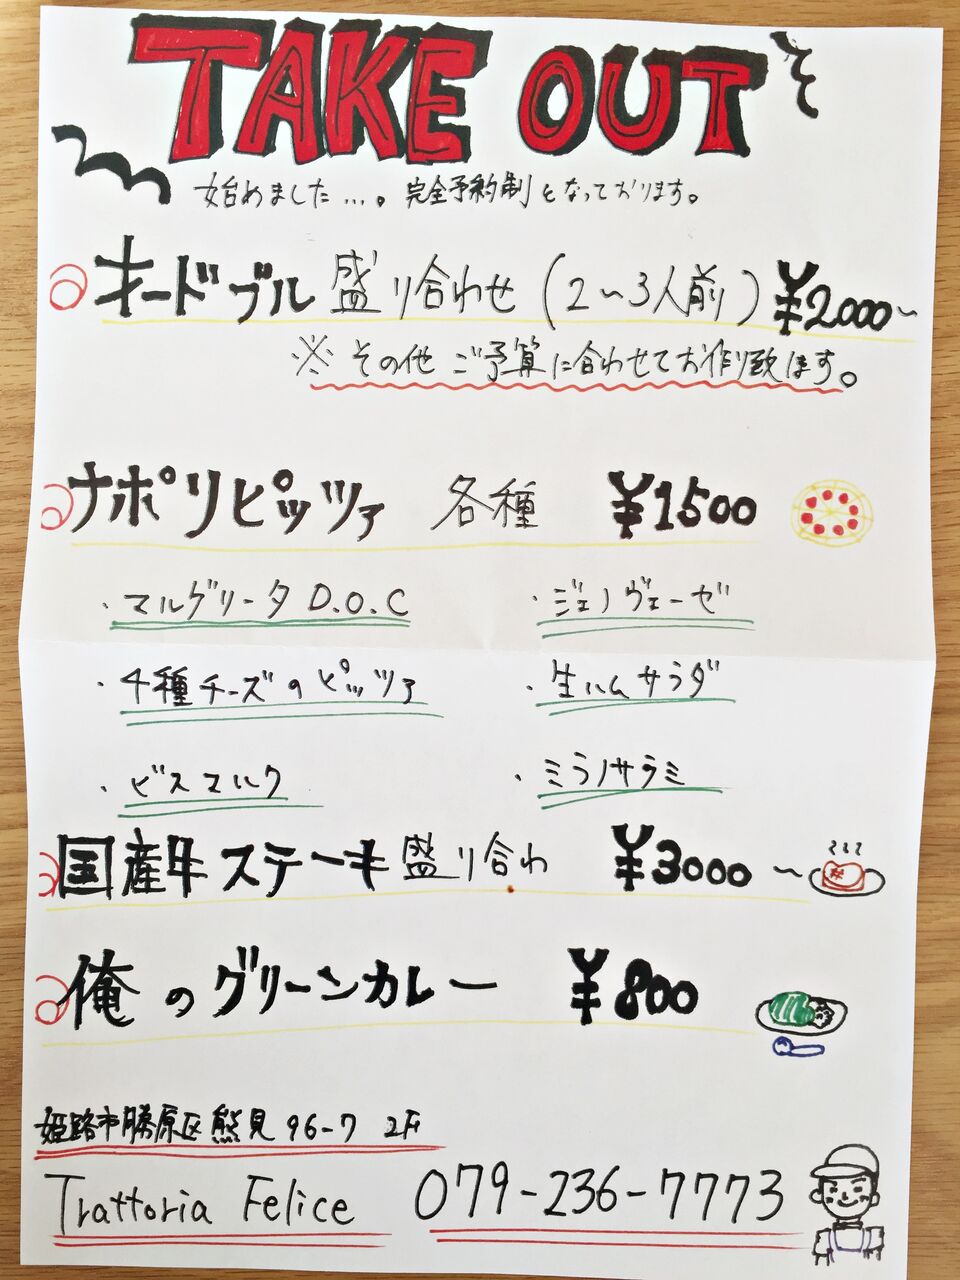 TAKE OUT
始めました…。完全予約制となっております。
オードブル 盛り合わせ(2〜3人前) ¥2000〜
※その他 ご予算に合わせてお作り致ます。
ナポリピッツァ 各種 ¥1500
・マルゲリータ D.O.C ・ジェノヴェーゼ
・4種チーズのピッツァ ・生ハムサラダ
・ビスマルク ・ミラノサラミ
国産牛ステーキ盛り合わ ¥3000〜
俺のグリーンカレー ¥800
姫路市勝原区熊見 96-7 2F
Trattoria Felice 079-236-7773